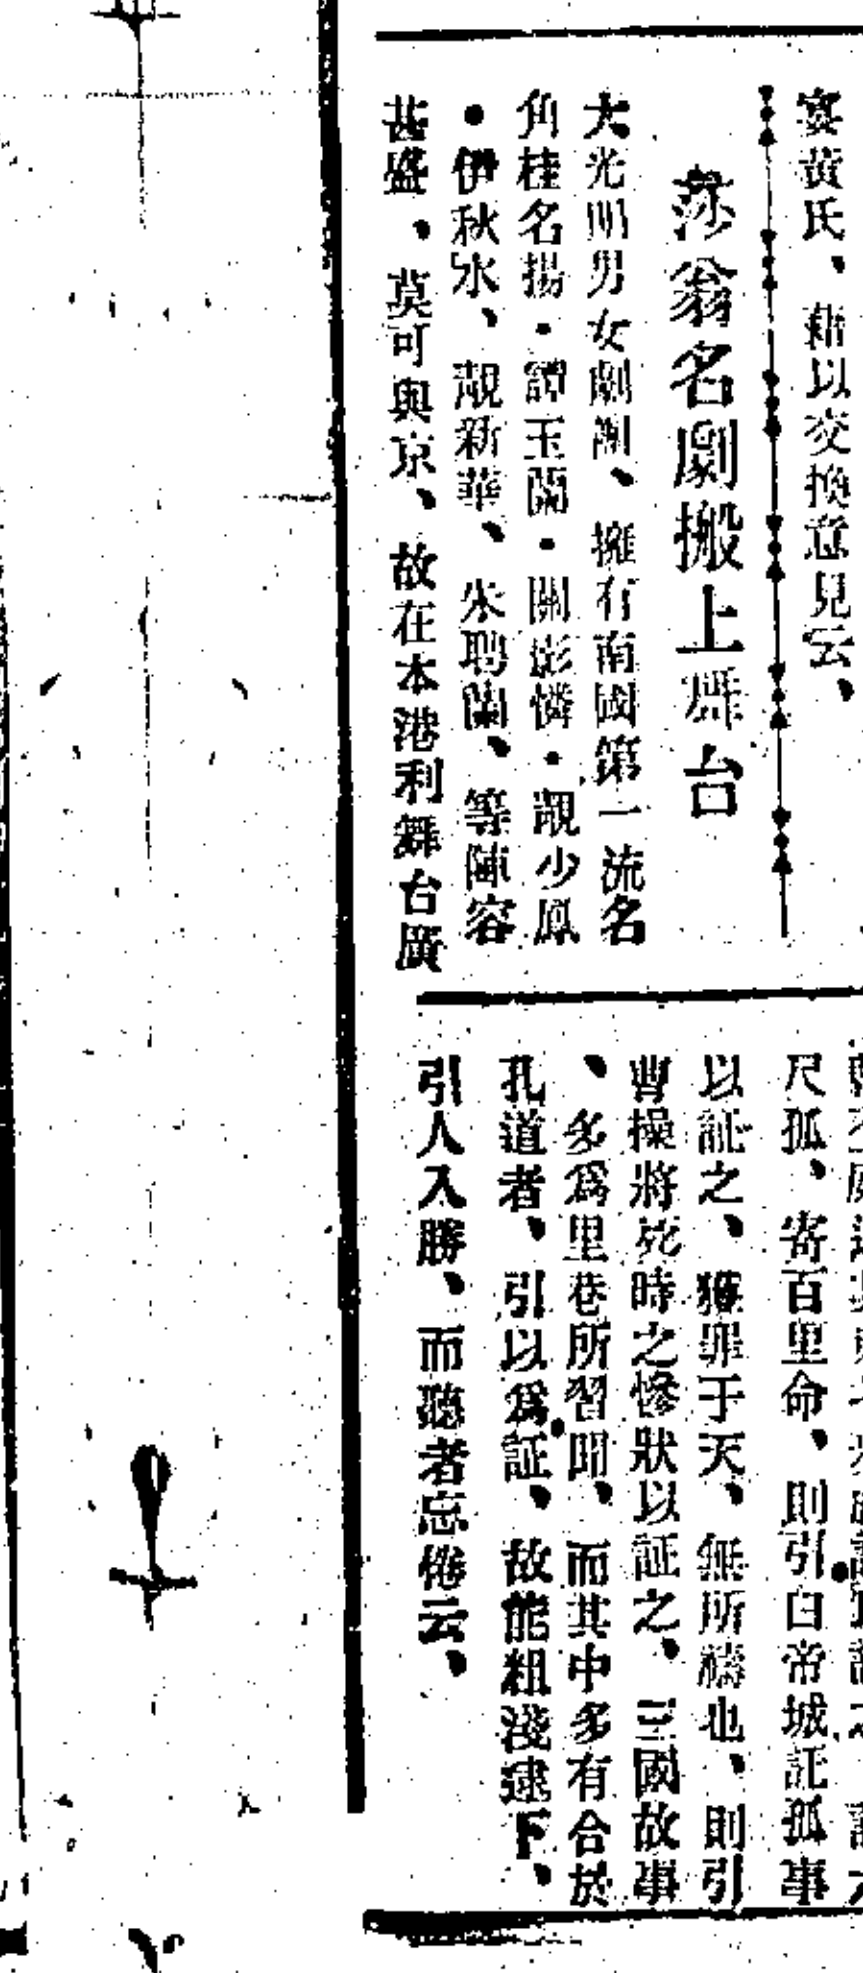 宴黃氏、藉以交換意見云、
莎翁名劇搬上舞台
大光明男女劇團、擁有南國第一流名
角桂名揚・譚玉蘭・關影憐・靚少鳳
・伊秋水、靚新華、朱聘蘭、等陣容
甚盛、莫可與京、故在本港利舞台廣
尺孤、寄百里命、則引白帝城託孤事
以証之、獲罪于天、無所禱也、則引
曹操將死時之慘狀以証之、三國故事
、多爲里巷所習聞、而其中多有合於
孔道者、引以爲証、故能粗淺逮下、
引人入勝、而聽者忘倦云、